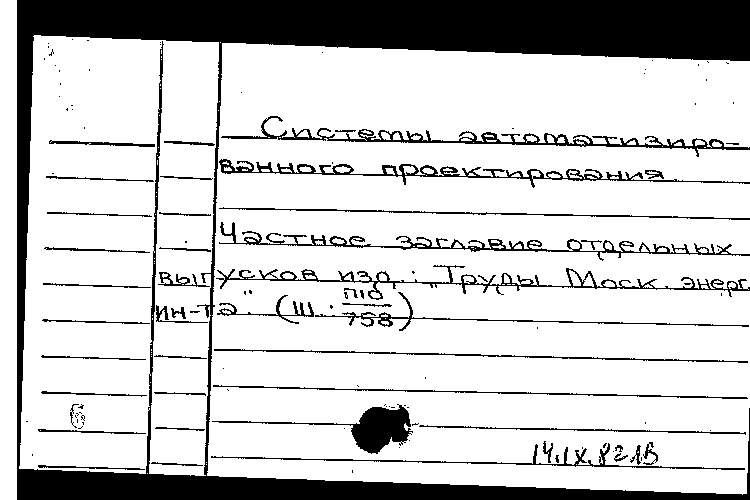 Системы автоматизиро-
ванного проектирования.
Частное заглавие отдельных
выпусков изд.: „Труды Моск. энерг.
ин-та". (Ш : П10/758)
6
14.IX.82 ЛВ